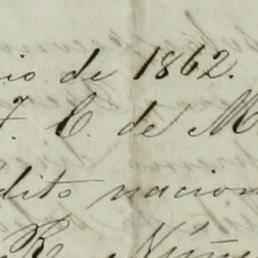 io de 1862.
F. C. de M
dito nacion
R. Núñe